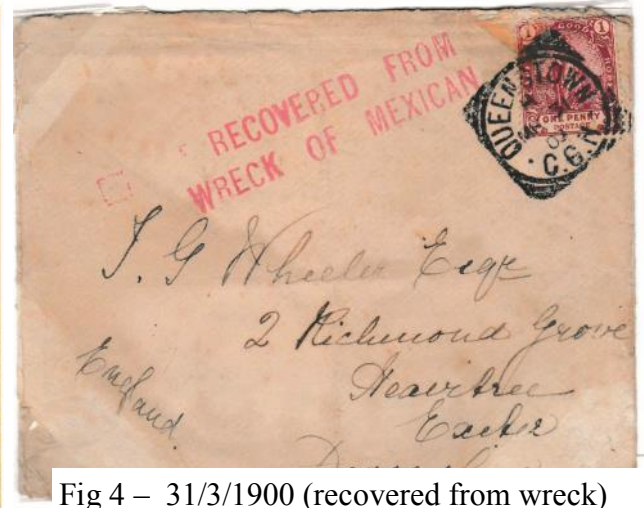 RECOVERED FROM
WRECK OF MEXICAN
1 GOOD HOPE 1
ONE PENNY
POSTAGE
QUEENSTOWN
C.G.H
J. G Wheeler Esqr
2 Richmond Grove
Heavitree
Exeter
England
Fig 4 – 31/3/1900 (recovered from wreck)